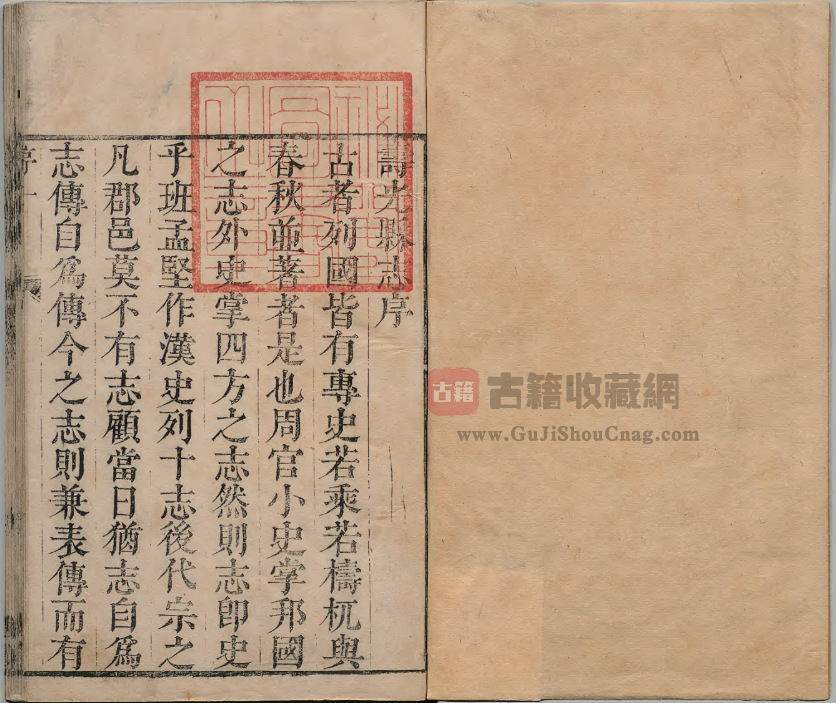 壽光縣志序
古者列國皆有專史若乘若檮杌與
春秋並著者是也周官小史掌邦國
之志外史掌四方之志然則志卽史
乎班孟堅作漢史列十志後代宗之
凡郡邑莫不有志顧當日猶志自爲
志傳自爲傳今之志則兼表傳而有
序一
古籍 古籍收藏網
www.GuJiShouCnag.com